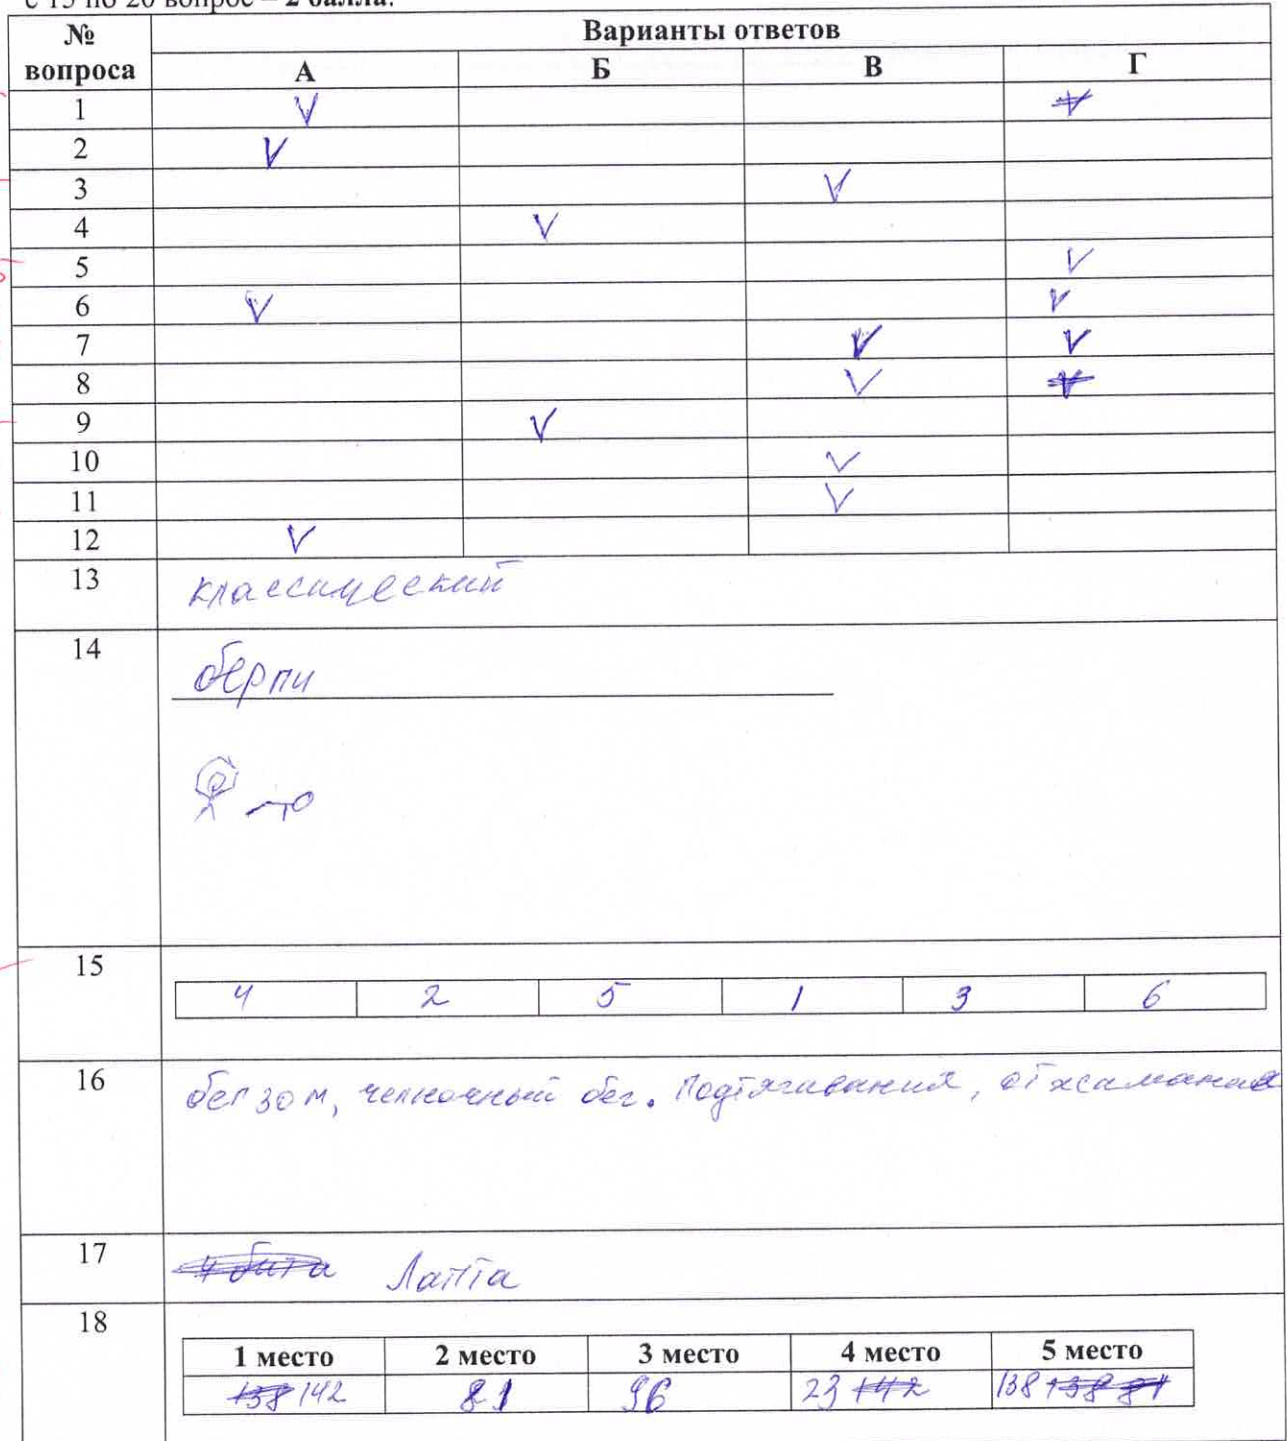 с 15 по 20 вопрос – 2 балла.
№ вопроса Варианты ответов
А Б В Г
1 V V
2 V
3 V
4 V
5 V
6 V V
7 V V
8 V V
9 V
10 V
11 V
12 V
13 классический
14 берпи
15 4 2 5 1 3 6
16 бег 30 м, челночный бег. Подтягивания, отжимание
17 Лапта
18
1 место 2 место 3 место 4 место 5 место
138 142 81 96 23 142 138 138 81